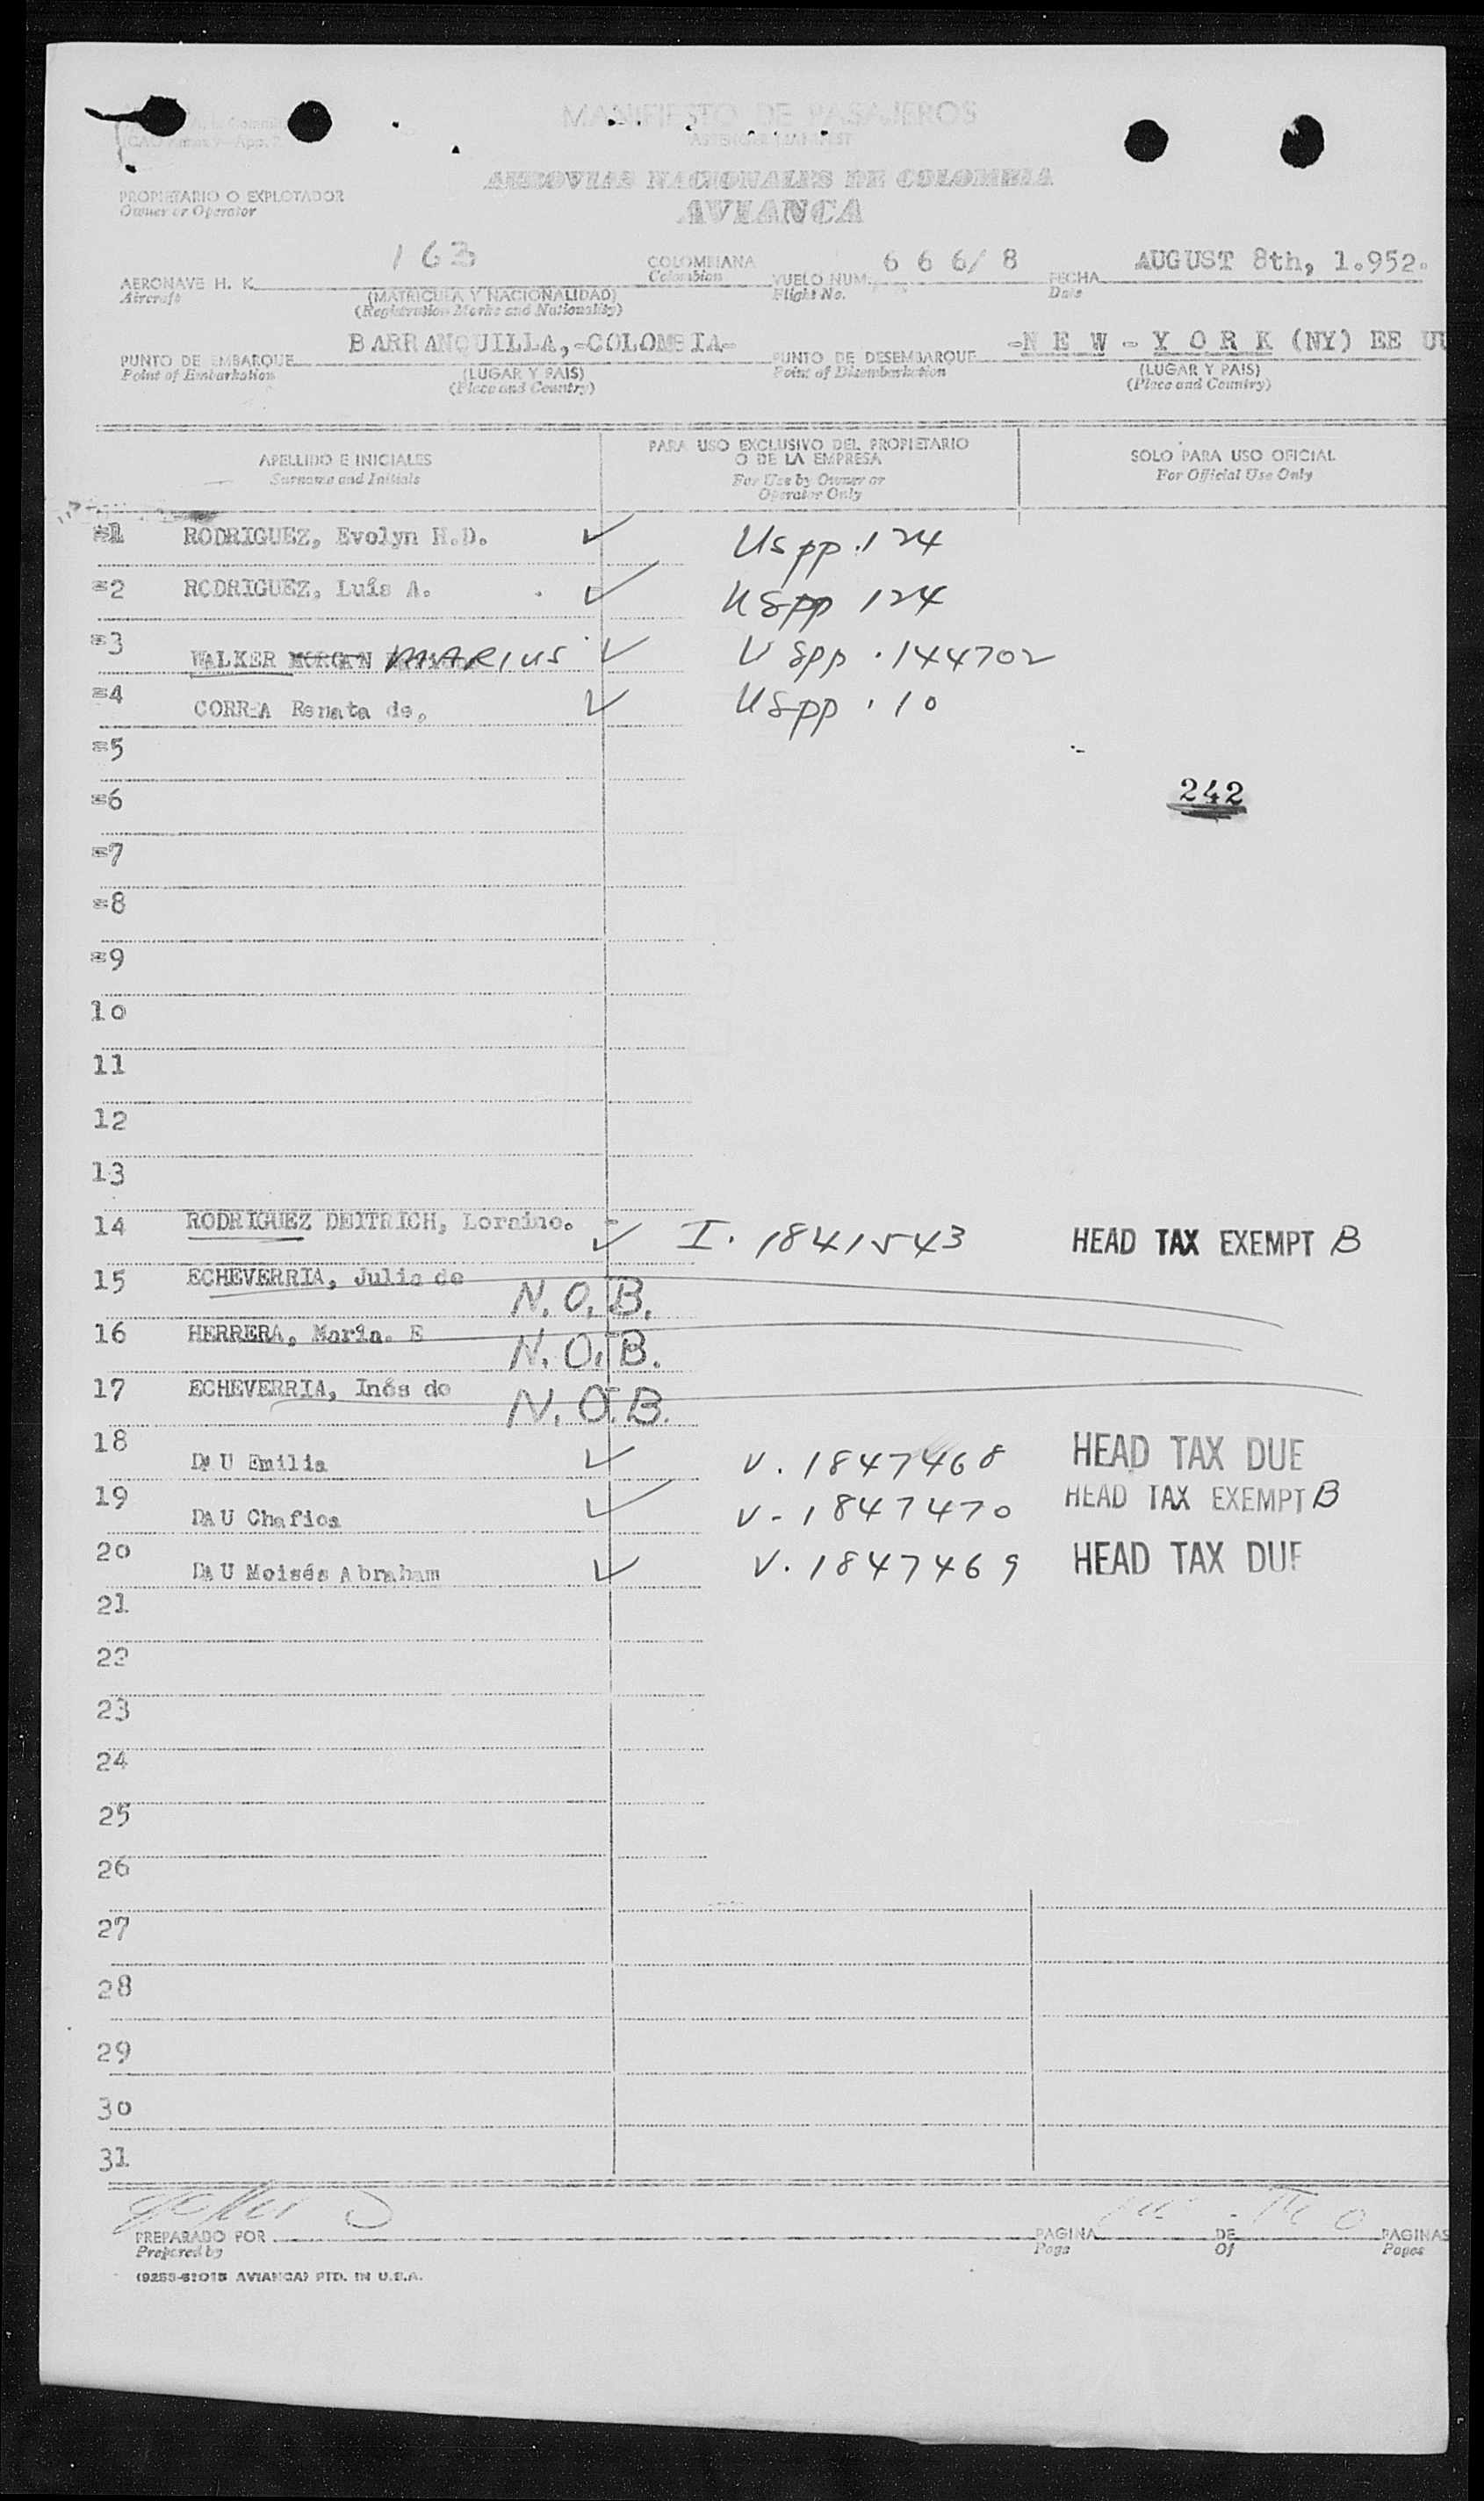 MANIFIESTO DE PASAJEROS
PASSENGER MANIFEST
AEROVIAS NACIONALES DE COLOMBIA
AVIANCA
PROPIETARIO O EXPLOTADOR
Owner or Operator
AERONAVE H. K. 163 COLOMBIANA VUELO NUM. 6 6 6/ 8 FECHA AUGUST 8th, 1.952.
Aircraft (MATRICULA Y NACIONALIDAD) Colombian Flight No. Date
(Registration Marks and Nationality)
PUNTO DE EMBARQUE BARRANQUILLA,-COLOMBIA- PUNTO DE DESEMBARQUE -N E W - Y O R K (NY) EE UU
Point of Embarkation (LUGAR Y PAIS) Point of Disembarkation (LUGAR Y PAIS)
(Place and Country) (Place and Country)
APELLIDO E INICIALES
Surname and Initials
PARA USO EXCLUSIVO DEL PROPIETARIO
O DE LA EMPRESA
For Use by Owner or
Operator Only
SOLO PARA USO OFICIAL
For Official Use Only
=1 RODRIGUEZ, Evolyn H.D. ✓ USpp.124
=2 RODRIGUEZ, Luís A. ✓ USpp 124
=3 WALKER MORGAN MARIUS ✓ USpp.144702
=4 CORREA Renata de, ✓ USpp.10
=5
=6 242
=7
=8
=9
10
11
12
13
14 RODRIGUEZ DEITRICH, Loraine. ✓ I. 1841543 HEAD TAX EXEMPT B
15 ECHEVERRIA, Julia de N.O.B.
16 HERRERA, María. E N.O.B.
17 ECHEVERRIA, Inés de N.O.B.
18 DAU Emilia ✓ V. 1847468 HEAD TAX DUE
19 DAU Chafica ✓ V-1847470 HEAD TAX EXEMPT B
20 DAU Moisés Abraham ✓ V. 1847469 HEAD TAX DUE
21
22
23
24
25
26
27
28
29
30
31
PREPARADO POR PAGINA DE PAGINAS
Prepared by Page Of Pages
AVIANCA) PTD. IN U.S.A.